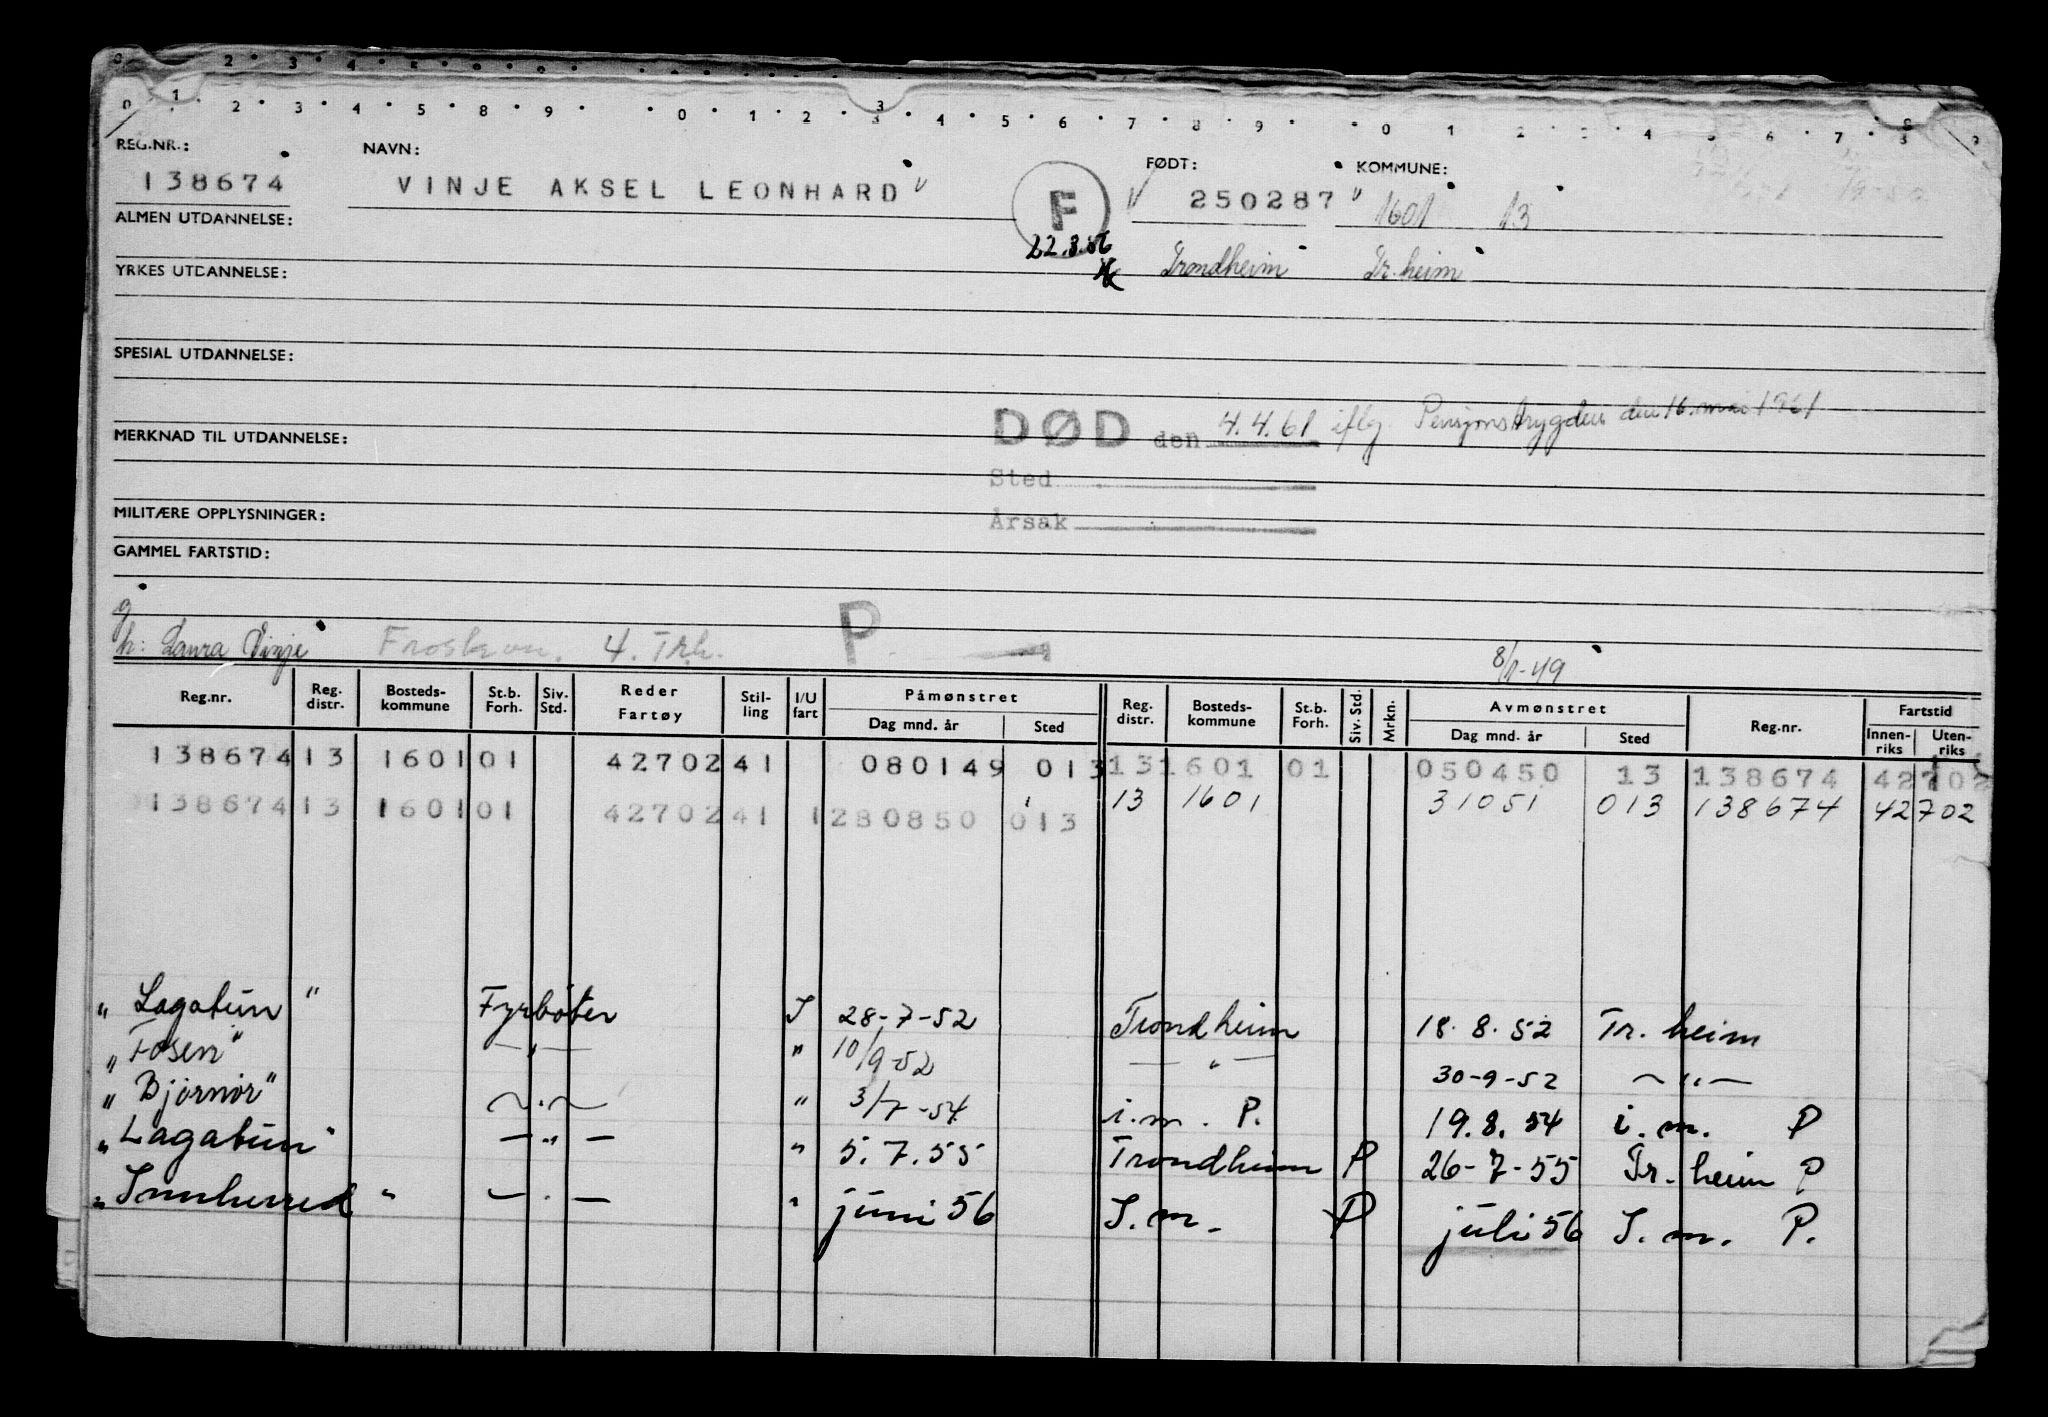 0 1 2 3 4 5 8 9 0 1 2 3 4 5 6 7 8 9 0 1 2 3 4 5 6 7 8 9
REG.NR.: NAVN: FØDT: KOMMUNE:
138674 VINJE AKSEL LEONHARD F 250287 1601 13
ALMEN UTDANNELSE:
22.8.56 Trondheim Tr.heim
YRKES UTDANNELSE:
SPESIAL UTDANNELSE:
DØD den 4.4.61 iflg. Pensjonstrygden den 16. mai 1961
MERKNAD TIL UTDANNELSE:
Sted
MILITÆRE OPPLYSNINGER:
Årsak
GAMMEL FARTSTID:
g
h: Laura Vinje 4. Trh. P 8/1-49
Reg.nr. Reg. distr. Bosteds-kommune St.b. Forh. Siv. Std. Reder Fartøy Stil-ling I/U fart Påmønstret Dag mnd. år Sted Reg. distr. Bosteds-kommune St.b. Forh. Siv. Std. Mrkn. Avmønstret Dag mnd. år Sted Reg.nr. Fartstid Innen-riks Uten-riks
138674 13 1601 01 42702 41 080149 013 13 1601 01 050450 13 138674 42702
138674 13 1601 01 42702 41 1 280850 013 13 1601 31051 013 138674 42702
„Lagatun" Fyrbøter I 28-7-52 Trondheim 18.8.52 Tr.heim
„Fosen" — " — " 10/9-52 — " — 30-9-52 — " —
„Bjørnør" — " — " 3/7-54 i.m. P. 19.8.54 i.m. P
„Lagatun" — " — " 5.7.55 Trondheim P 26-7-55 Tr.heim P
„Innherred" — " — " juni 56 I.m. P juli 56 I.m. P.